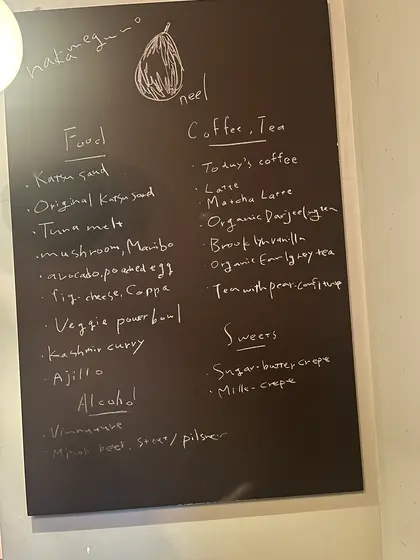 nakameguro
neel
Food
· Katsu sand
· Original Katsu sand
· Tuna melt
· mushroom, Maribo
· avocado, poached egg
· fig-cheese, Coppa
· Veggie power bowl
· Kashmir curry
· Ajillo
Alcohol
· Vin nature
· beer, stout / pilsner
Coffee, Tea
· Today's coffee
· Latte
· Matcha Latte
· Organic Darjeeling tea
· Brooklyn vanilla
· Organic Earl grey tea
· Tea with pear-confiture
Sweets
· Sugar-butter crepe
· Milk-crepe